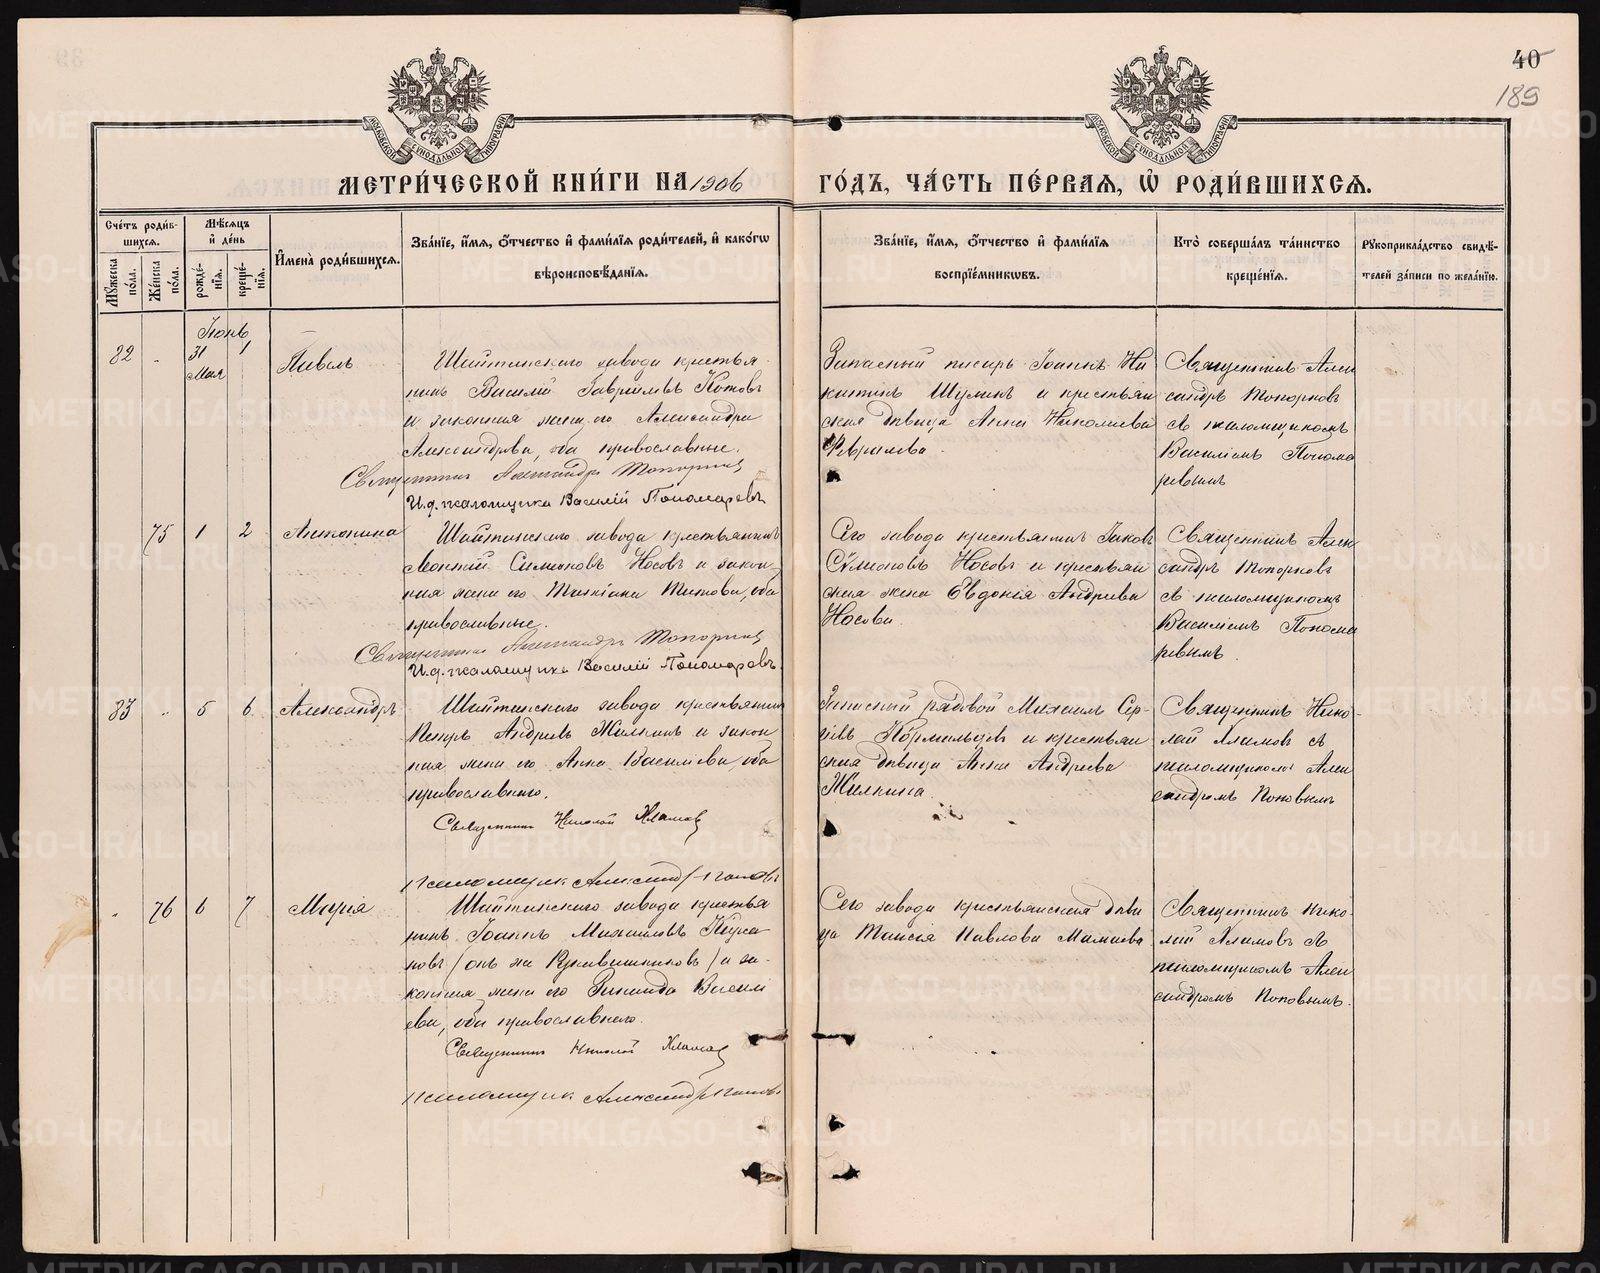 40
189
МЕТРИ́ЧЕСКОЙ КНИ́ГИ НА 1906
ГО́ДЪ, ЧА́СТЬ ПЕ́РВАЯ, Ѽ РОДИ́ВШИХСЯ.
Сче́тъ роди́в-
шихся.
Мѣ́сяцъ
и҆ де́нь
Му́жеска по́ла.
Же́нска по́ла.
рожде́-
нїя.
креще́-
нїя.
И҆мена̀ роди́вшихся.
Зва́нїе, и҆́мя, ѻ҆́тчество и҆ фами́лїя роди́телей, и҆ како́гѡ
вѣроисповѣ́данїя.
Зва́нїе, и҆́мя, ѻ҆́тчество и҆ фами́лїя
воспрїе́мникѡвъ.
Кто̀ соверша́лъ та́инство
креще́нїя.
Рꙋкоприкла́дство свидѣ́-
телей за́писи по жела́нїю.
Іюнь
82
31
Мая
1
Павелъ
Шайтинскаго завода крестья-
нинъ Василій Гавріиловъ Котовъ
и законная жена его Александра
Александрова, оба православные.
Священникъ Александръ Топорковъ
И.д. псаломщика Василій Пономаревъ
Запасный писарь Іоаннъ Ни
китинъ Шулинъ и крестьян
ская дѣвица Анна Николаева
Февралева
Священникъ Алек
сандръ Топорковъ
съ псаломщикомъ
Василіемъ Понома
ревымъ
75
1
2
Антонина
Шайтинскаго завода крестьянинъ
Леонтій Симеоновъ Носовъ и закон-
ная жена его Татіана Титова, оба
православные.
Священникъ Александръ Топорковъ
И.д. псаломщика Василій Пономаревъ.
Сего завода крестьянинъ Іаковъ
Сѵмеоновъ Носовъ и крестьян
ская жена Евдокія Андреева
Носова
Священникъ Алек
сандръ Топорковъ
съ псаломщикомъ
Василіемъ Понома
ревымъ
83
5
6
Александръ
Шайтинскаго завода крестьянинъ
Петръ Андреевъ Жилкинъ и закон
ная жена его Анна Васильева, оба
православнаго.
Священникъ Николай Хламовъ
Псаломщик Александр Поповъ
Запасный рядовой Михаилъ Сер-
гіевъ Кормильцевъ и крестьян
ская дѣвица Анна Андреева
Жилкина
Священникъ Нико-
лай Хламовъ съ
псаломщикомъ Алек
сандромъ Поповымъ
76
6
7
Марія
Шайтинскаго завода крестья
нинъ Іоаннъ Михаиловъ Кирса
новъ (онъ же Рукавишниковъ) и за-
конная жена его Зинаида Василі
ева, оба православнаго.
Священникъ Николай Хламовъ
Псаломщик Александр Поповъ
Сего завода крестьянская дѣви
ца Таисія Павлова Мамаева
Священникъ Нико-
лай Хламовъ съ
псаломщикомъ Алек
сандромъ Поповымъ.